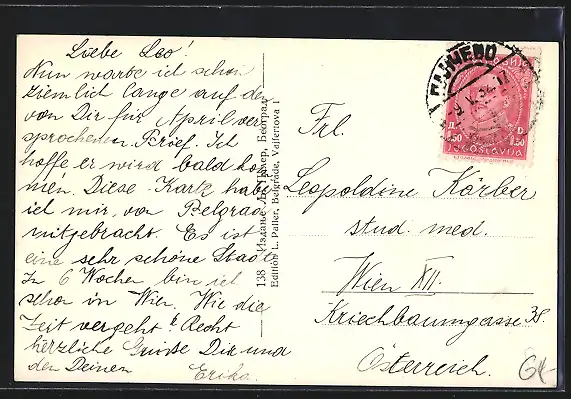 Liebe Leo!
Nun warte ich schon
ziemlich lange auf den
von Dir für April ver
sprochenen Brief. Ich
hoffe er wird bald kom
men. Diese Karte habe
ich mir von Belgrad
mitgebracht. Es ist
eine sehr schöne Stadt.
In 6 Wochen bin ich
schon in Wien. Wie die
Zeit vergeht! Recht
herzliche Grüße Dir und
den Deinen
Erika.
138 Издање Л. Палер, Београд
Edition L. Paller, Belgrade, Vajfertova 1
ПАНЧЕВО
9.V.32.17
1.50 1.50
JUGOSLAVIJA
Frl.
Leopoldine Körber
stud. med.
Wien XII.
Kriechbaumgasse 38.
Österreich.